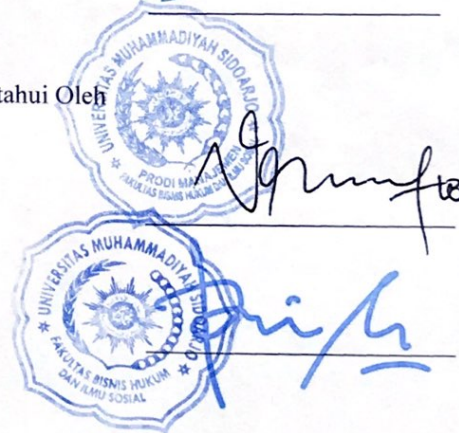 tahui Oleh
UNIVERSITAS MUHAMMADIYAH SIDOARJO
PRODI MANAJEMEN
FAKULTAS BISNIS HUKUM DAN ILMU SOSIAL
UNIVERSITAS MUHAMMADIYAH SIDOARJO
FAKULTAS BISNIS HUKUM
DAN ILMU SOSIAL